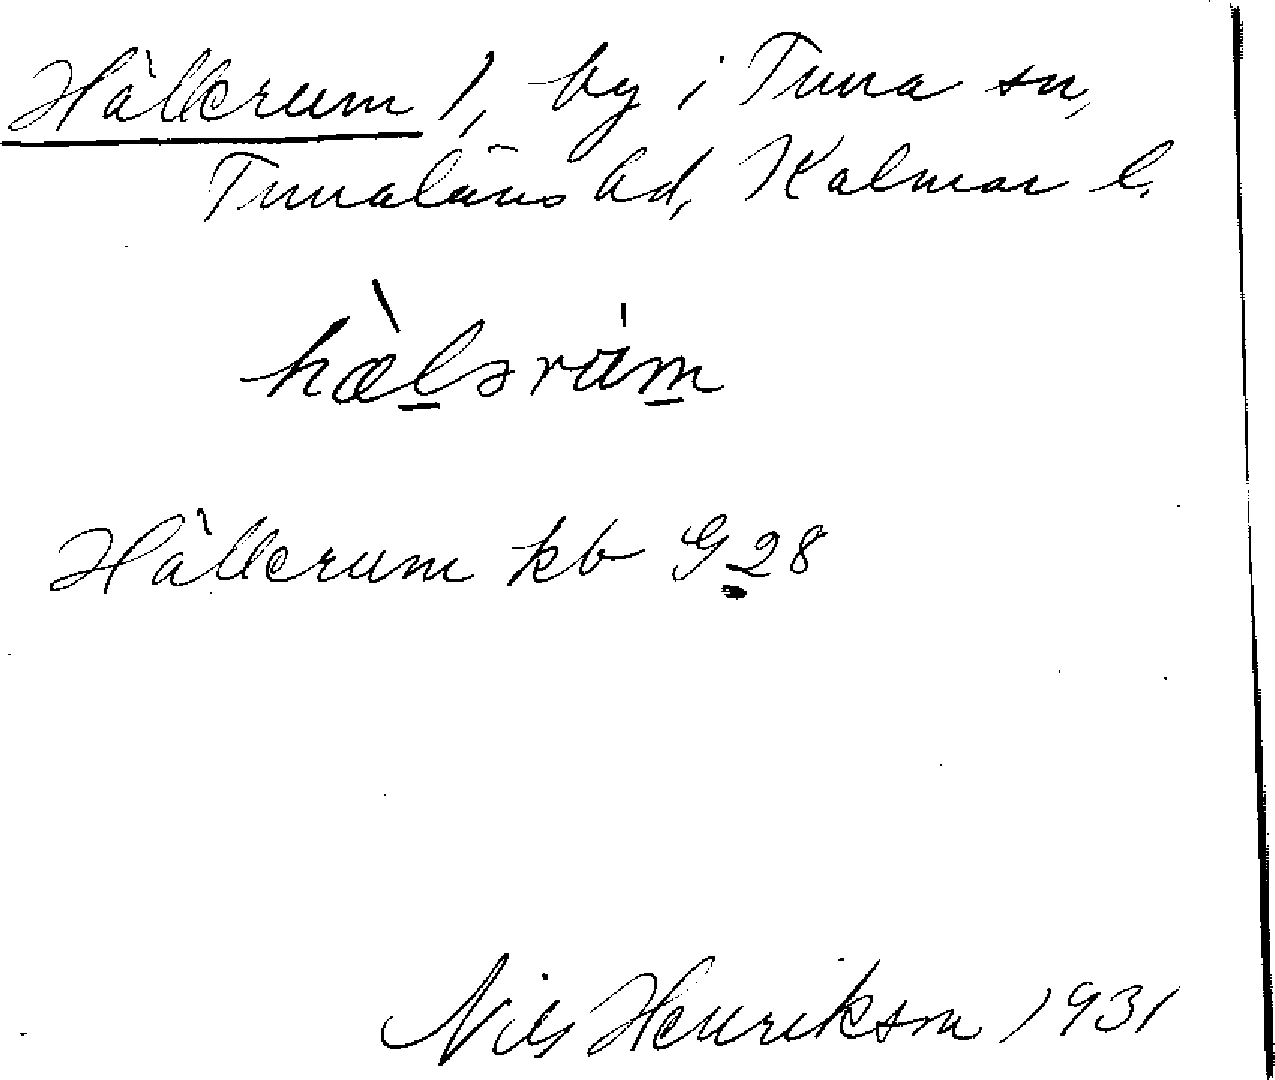 Hällerum 1, by i Tuna sn,
Tunaläns hd, Kalmar l.
hæ̀lərum
Hällerum kb G 28
Nils Henrikson 1931